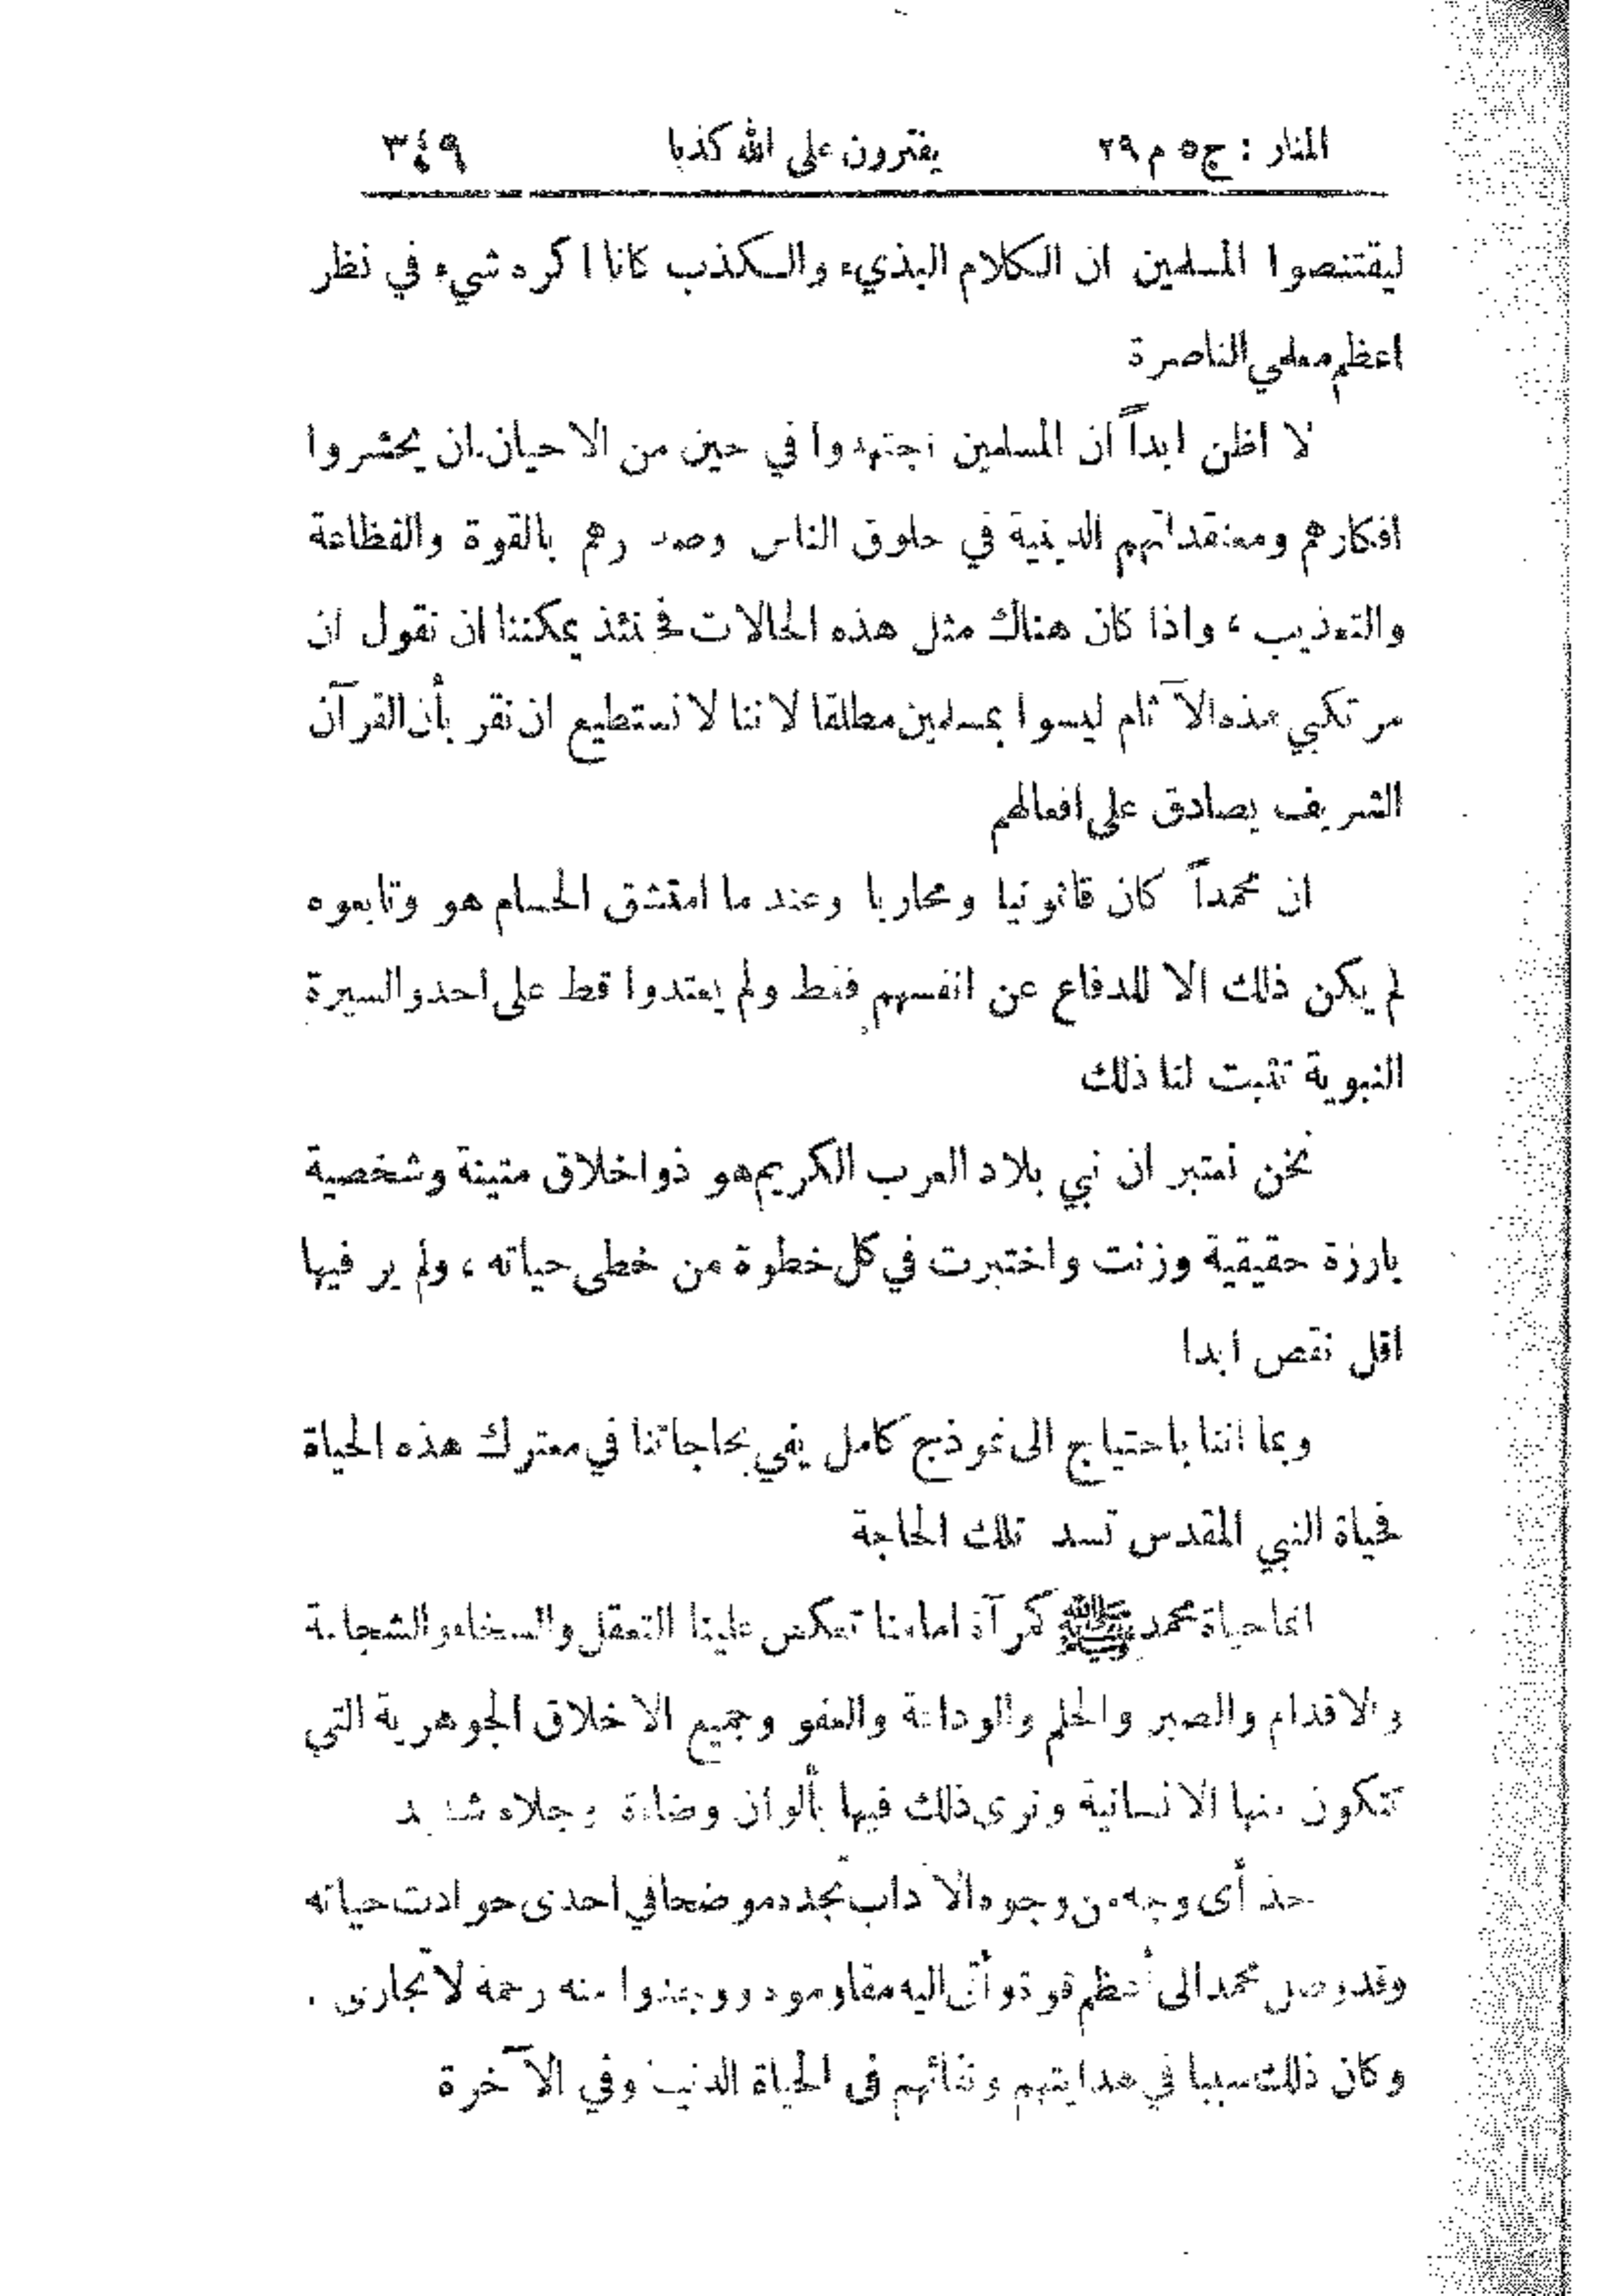 المنار : ج ٥ م ٢٩ يفترون على الله كذبا ٣٤٩
ليقتنصوا المسلمين ان الكلام البذيء والكذب كانا اكره شيء في نظر
اعظم معلمي الناصرة
لا اظن ابداً ان المسلمين اجتهدوا في حين من الاحيان ان يحشروا
افكارهم ومعتقداتهم الدينية في حلوق الناس وصدورهم بالقوة والفظاعة
والتعذيب ، واذا كان هناك مثل هذه الحالات فحينئذ يمكننا ان نقول ان
مرتكبي هذه الآثام ليسوا بمسلمين مطلقا لاننا لا نستطيع ان نقر بأن القرآن
الشريف يصادق على افعالهم
ان محمداً كان قانونيا ومحاربا وعند ما امتشق الحسام هو وتابعوه
لم يكن ذلك الا للدفاع عن انفسهم فقط ولم يعتدوا قط على احد والسيرة
النبوية تثبت لنا ذلك
نحن نعتبر ان نبي بلاد العرب الكريم هو ذو اخلاق متينة وشخصية
بارزة حقيقية وزنت واختبرت في كل خطوة من خطى حياته ، ولم ير فيها
اقل نقص ابدا
وبما اننا باحتياج الى نموذج كامل يفي بحاجاتنا في معترك هذه الحياة
فحياة النبي المقدس تسد تلك الحاجة
انما حياة محمد ﷺ كمرآة امامنا تعكس علينا التعقل والسخاء والشجاعة
والاقدام والصبر والحلم والوداعة والعفو وجميع الاخلاق الجوهرية التي
تتكون منها الانسانية ونرى ذلك فيها بألوان وضاءة وجلاء شديد
خذ أي وجه من وجوه الآداب تجده موضحا في احدى حوادث حياته
وقد وصل محمد الى أعظم قوة وأتى اليه مقاوموه ووجدوا منه رحمة لا تجارى .
وكان ذلك سببا في هدايتهم ونقائهم في الحياة الدنيا وفي الآخرة